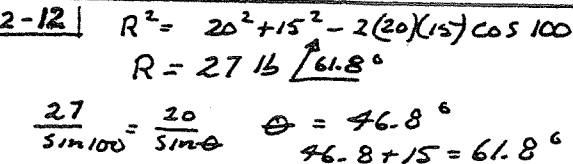 2-12 | R² = 20² + 15² - 2(20)(15) cos 100
R = 27 lb ∠61.8°
27/sin100 = 20/sinθ θ = 46.8°
46.8 + 15 = 61.8°